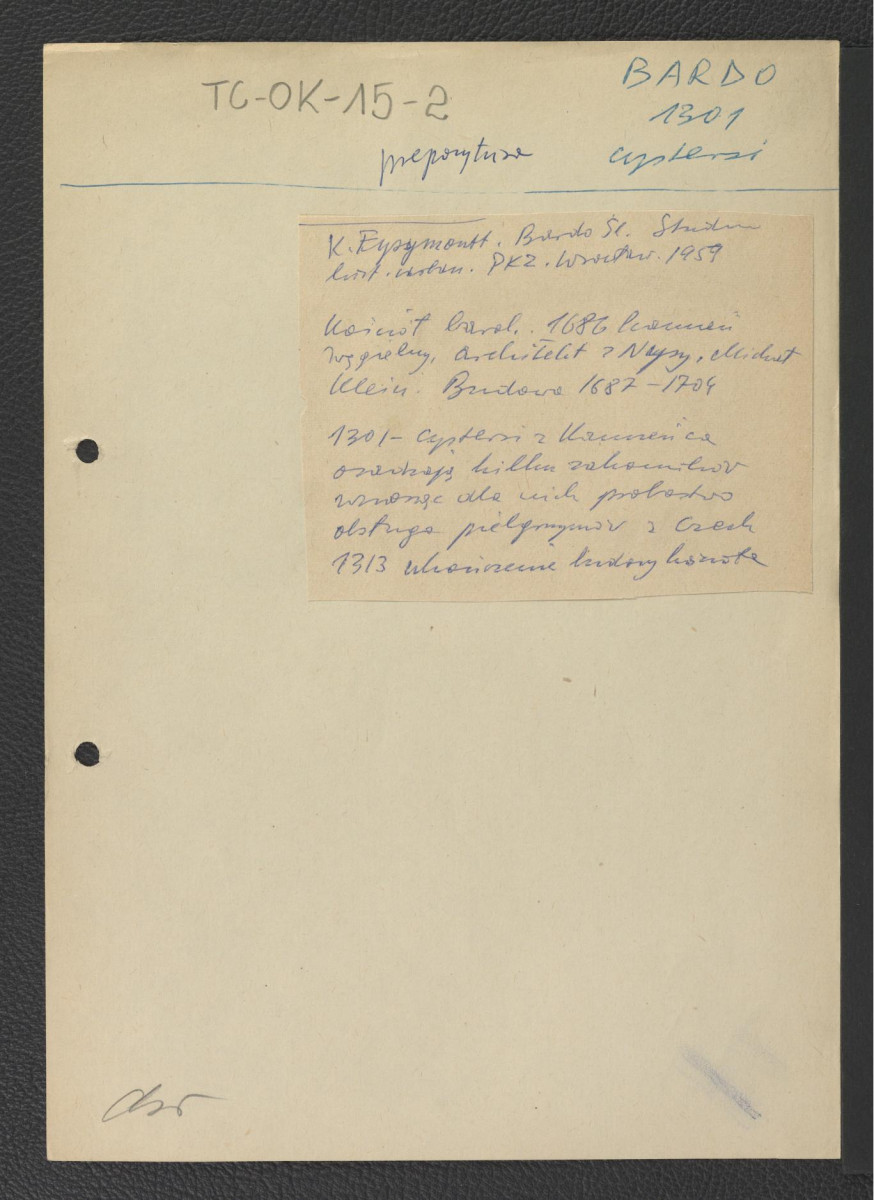 TC-OK-15-2
BARDO
1301
prepozytura
cystersi
K. Eysymontt. Bardo Śl. Studium
hist. urban. PKZ. Wrocław. 1959
Kościół barok. 1686 kamień
węgielny, architekt z Nysy, Michał
Klein. Budowa 1687-1704
1301- cystersi z Kamieńca
osadzają kilku zakonników
wznosząc dla nich probostwo
obsługa pielgrzymów z Czech
1313 ukończenie budowy kościoła